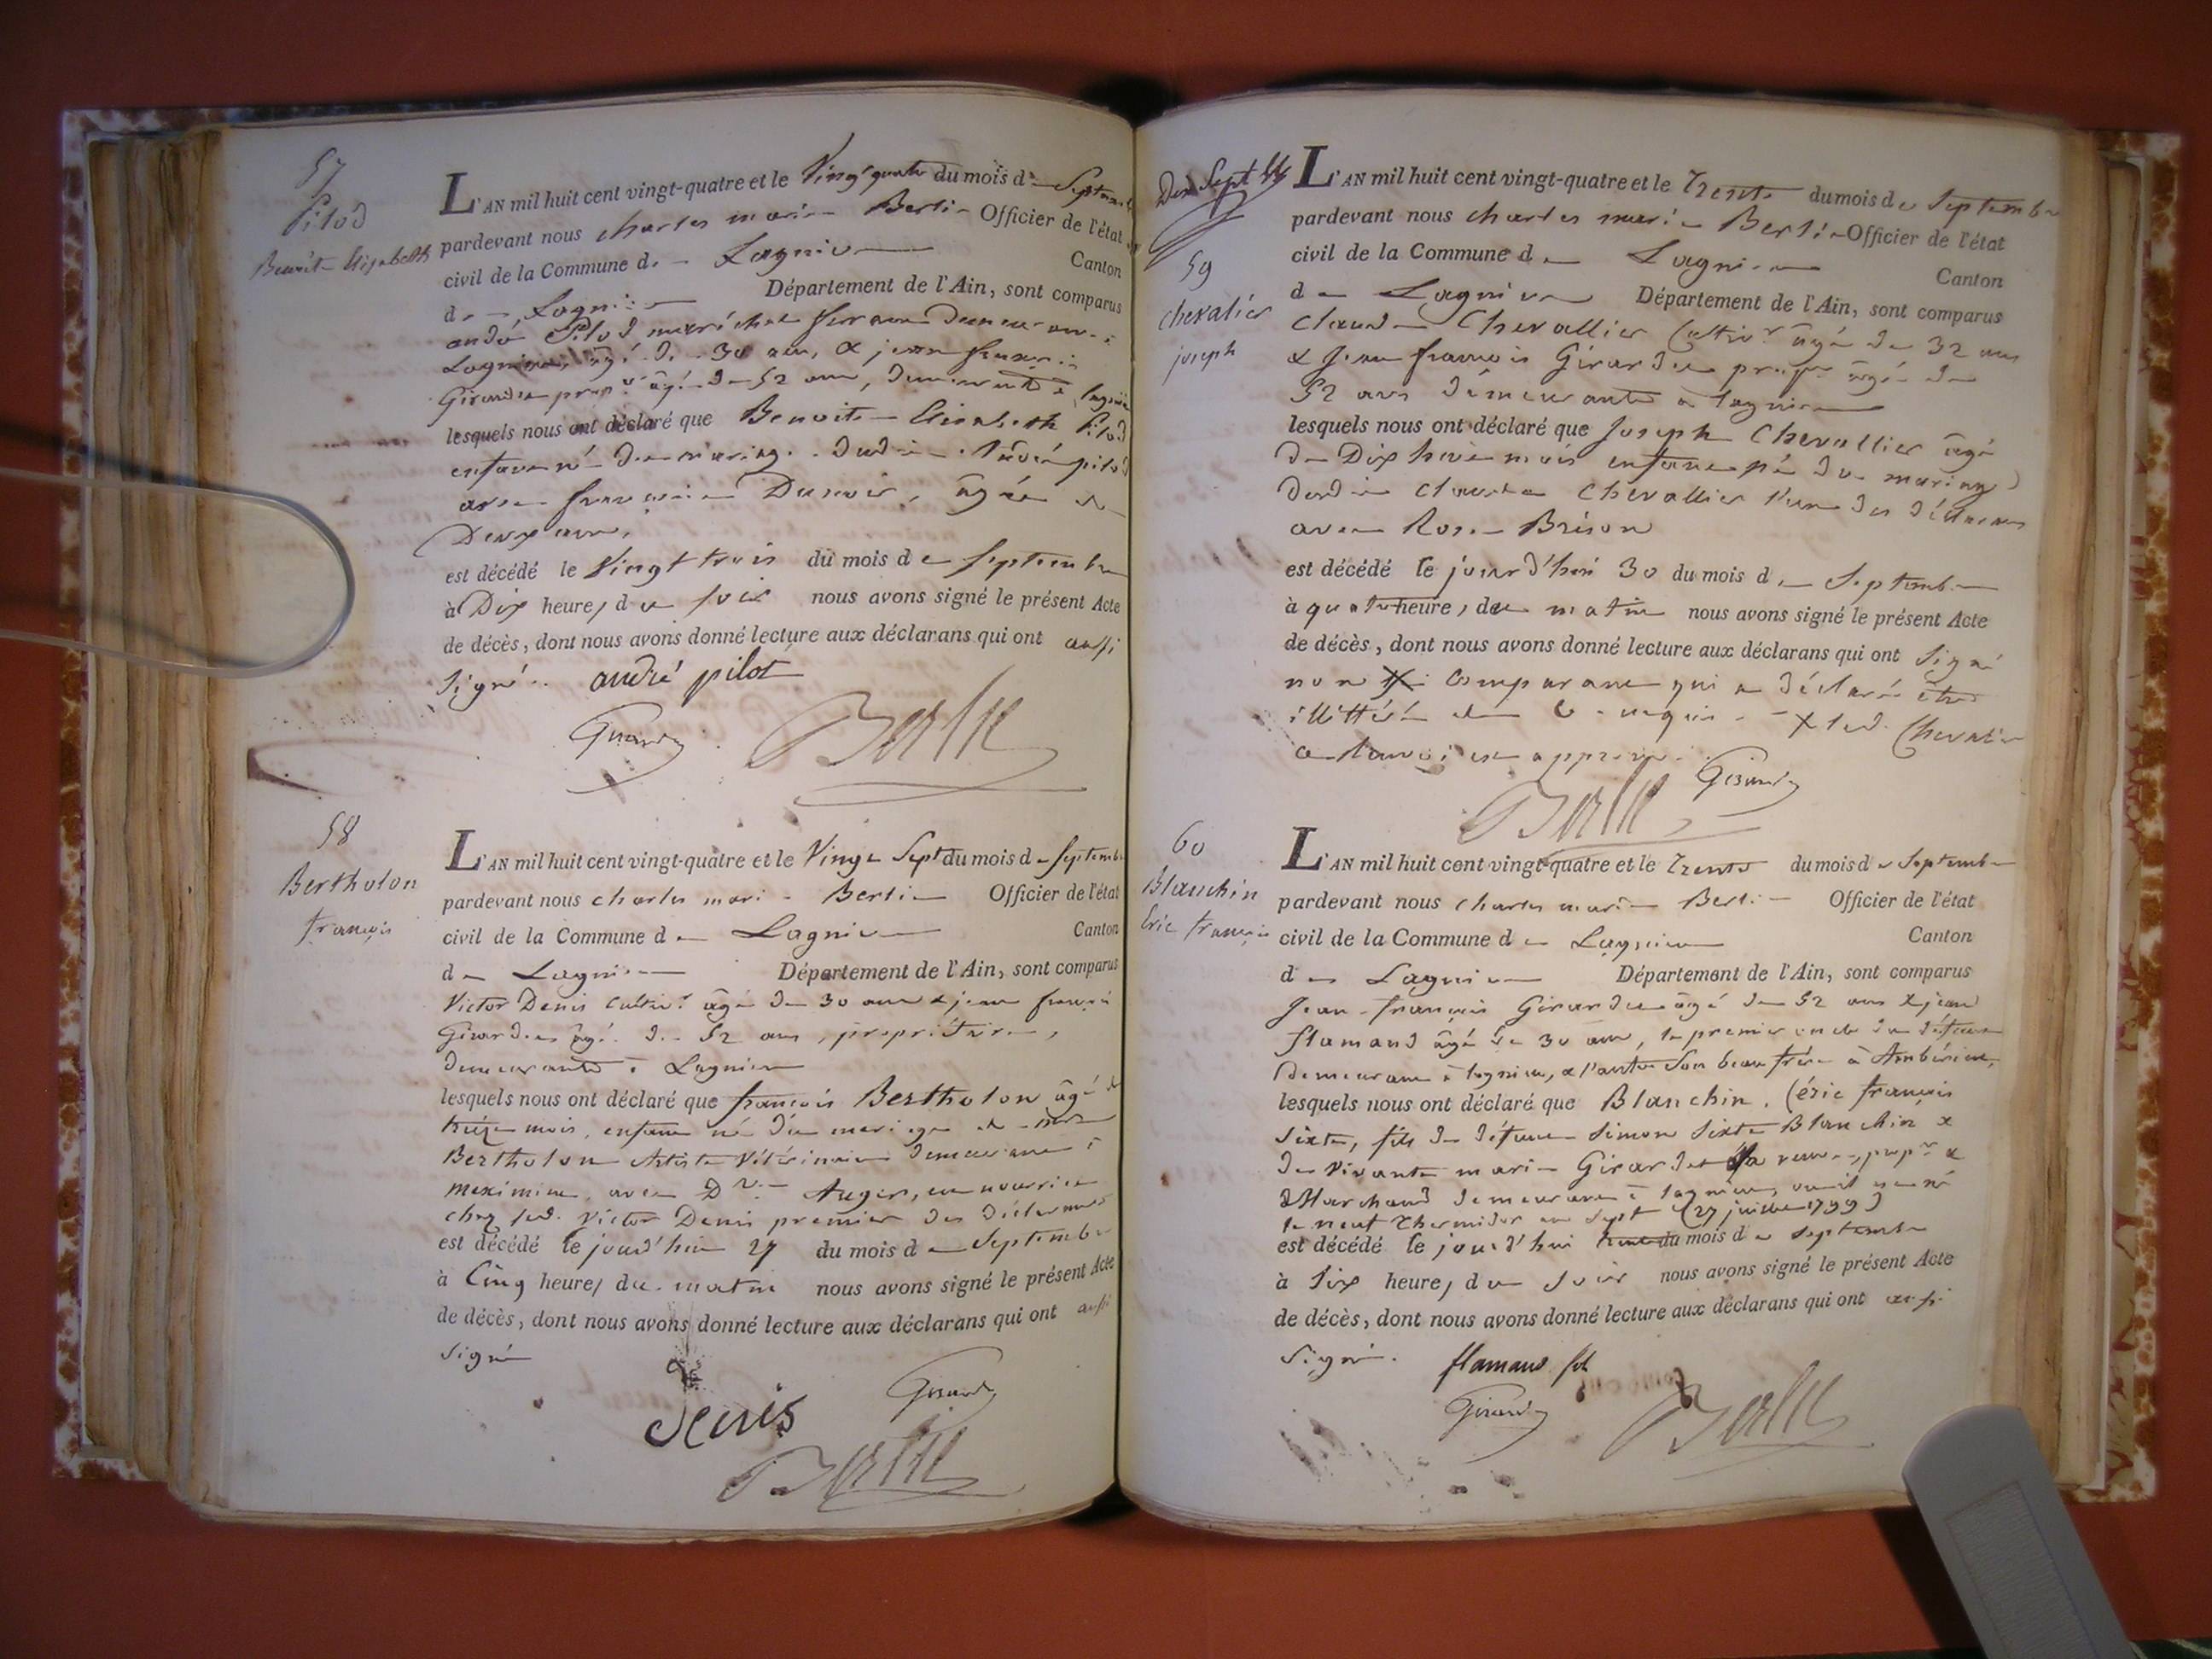 57
Pilod
Benoite Elizabeth
L'AN mil huit cent vingt-quatre et le Vingt quatre du mois de Septembre
pardevant nous charles marie Berlie Officier de l'état
civil de la Commune de Lagnieu Canton
de Lagnieu Département de l'Ain, sont comparus
andré Pilod maréchal ferrant Demeurant à
Lagnieu, âgé de 30 ans, & jean françois
Girardet prop.re âgé de 52 ans, demeurants à Lagnieu
lesquels nous ont déclaré que Benoite Elisabeth Pilod
enfant né du mariage dudit André pilod
avec françoise Dunoir, âgée de
Deux ans,
est décédé le Vingt trois du mois de septembre
à Dix heures du soir nous avons signé le présent Acte
de décès, dont nous avons donné lecture aux déclarans qui ont aussi
signé. andré pilot
Girardet Berlie
58
Bertholon
françois
L'AN mil huit cent vingt-quatre et le Vingt Sept du mois de septembre
pardevant nous charles marie Berlie Officier de l'état
civil de la Commune de Lagnieu Canton
de Lagnieu Département de l'Ain, sont comparus
Victor Denis cultiv.r âgé de 30 ans & jean françois
Girardet âgé de 52 ans, propriétaire,
demeurants à Lagnieu
lesquels nous ont déclaré que françois Bertholon âgé de
treize mois, enfant né du mariage de
Bertholon Artiste Vétérinaire demeurant à
meximieux avec Auger, en nourrice
chez led. Victor Denis premier des déclarants
est décédé le jourd'hui 27 du mois de Septembre
à Cinq heures du matin nous avons signé le présent Acte
de décès, dont nous avons donné lecture aux déclarans qui ont aussi
signé
Denis Girardet
Berlie
Sept
59
chevalier
joseph
L'AN mil huit cent vingt-quatre et le Trente du mois de Septembre
pardevant nous charles marie Berlie Officier de l'état
civil de la Commune de Lagnieu Canton
de Lagnieu Département de l'Ain, sont comparus
Claude Chevallier Cultiv.r âgé de 32 ans
& Jean françois Girardet prop.re âgé de
52 ans demeurants à Lagnieu
lesquels nous ont déclaré que Joseph Chevallier âgé
de Dix huit mois enfant né du mariage
dudit Claude Chevallier l'un des déclarans
avec Rose Brison
est décédé le jourd'hui 30 du mois de Septembre
à quatre heures du matin nous avons signé le présent Acte
de décès, dont nous avons donné lecture aux déclarans qui ont signé
non X comparant qui a déclaré être
illittéré de ce requis X led. Chevalier
ce renvoi est approuvé
Girardet
Berlie
60
Blanchin
Eric françois
L'AN mil huit cent vingt-quatre et le Trente du mois de Septembre
pardevant nous charles marie Berlie Officier de l'état
civil de la Commune de Lagnieu Canton
de Lagnieu Département de l'Ain, sont comparus
Jean-françois Girardet âgé de 52 ans & jean
flamand âgé de 30 ans, le premier oncle du défunt
demeurant à lagnieu, & l'autre Son beau frère à Ambérieu,
lesquels nous ont déclaré que Blanchin (éric françois
sixte, fils de défunt Simon Sixte Blanchin &
de Vivante marie Girardet sa veuve, prop.re &
Marchand demeurant à lagnieu, où il est né
le neuf thermidor an sept (27 juillet 1799)
est décédé le jourd'hui trente du mois de septembre
à six heures du soir nous avons signé le présent Acte
de décès, dont nous avons donné lecture aux déclarans qui ont aussi
signé. flamand
Girardet Berlie